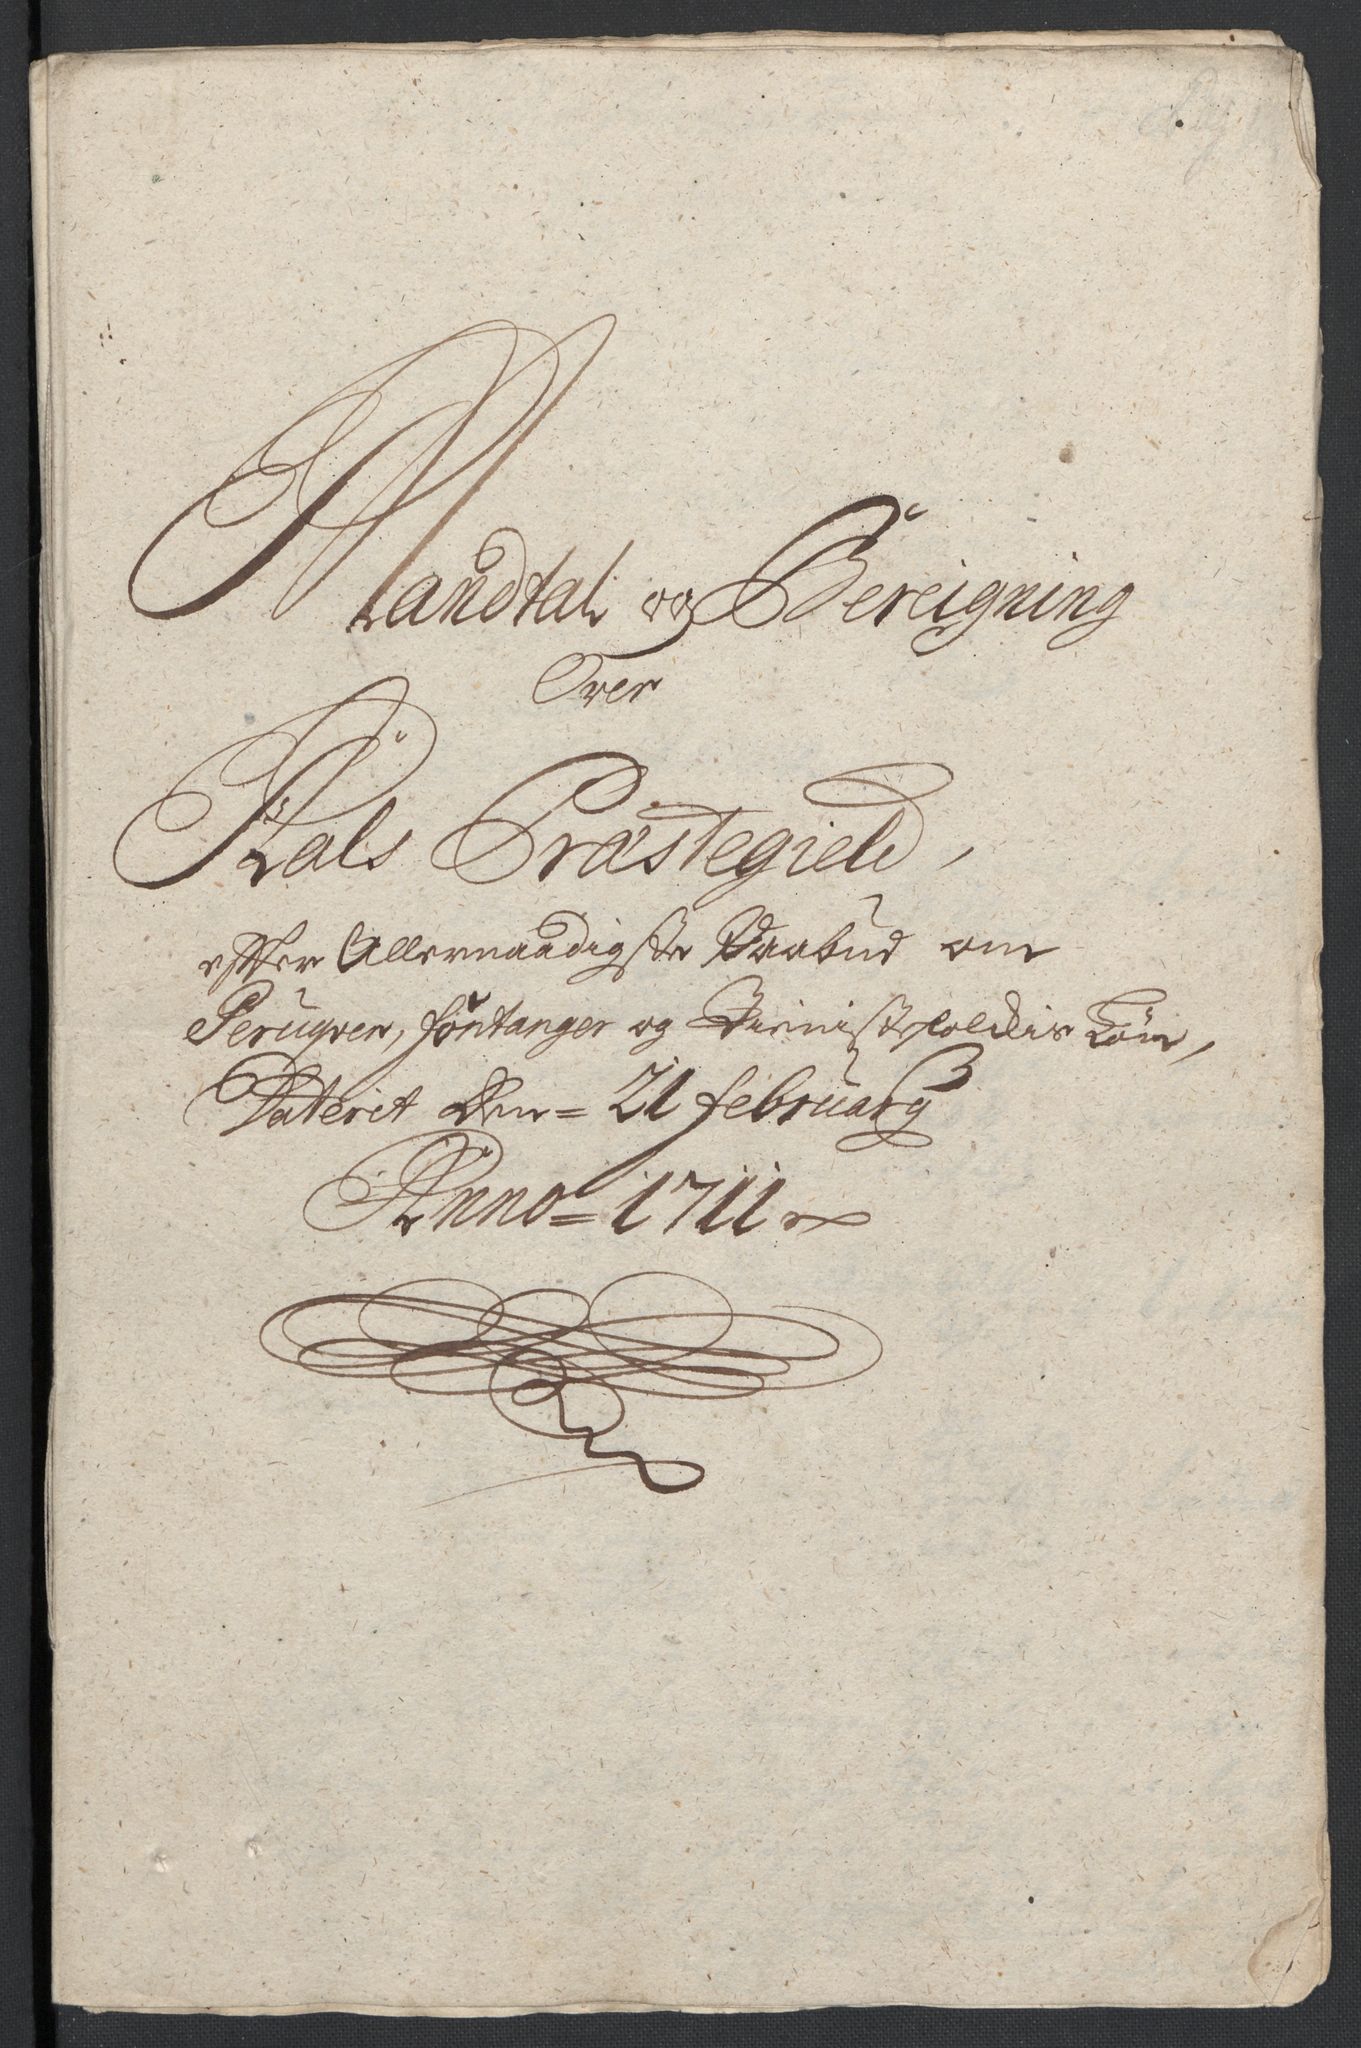 Mandtal og Bereigning
Over
Hals Præstegield,
effter Allernaadigste Paabud om
Peruqver, fontanger og Tienistefolckis Løn,
Dateret den = 21 february
Anno = 1711